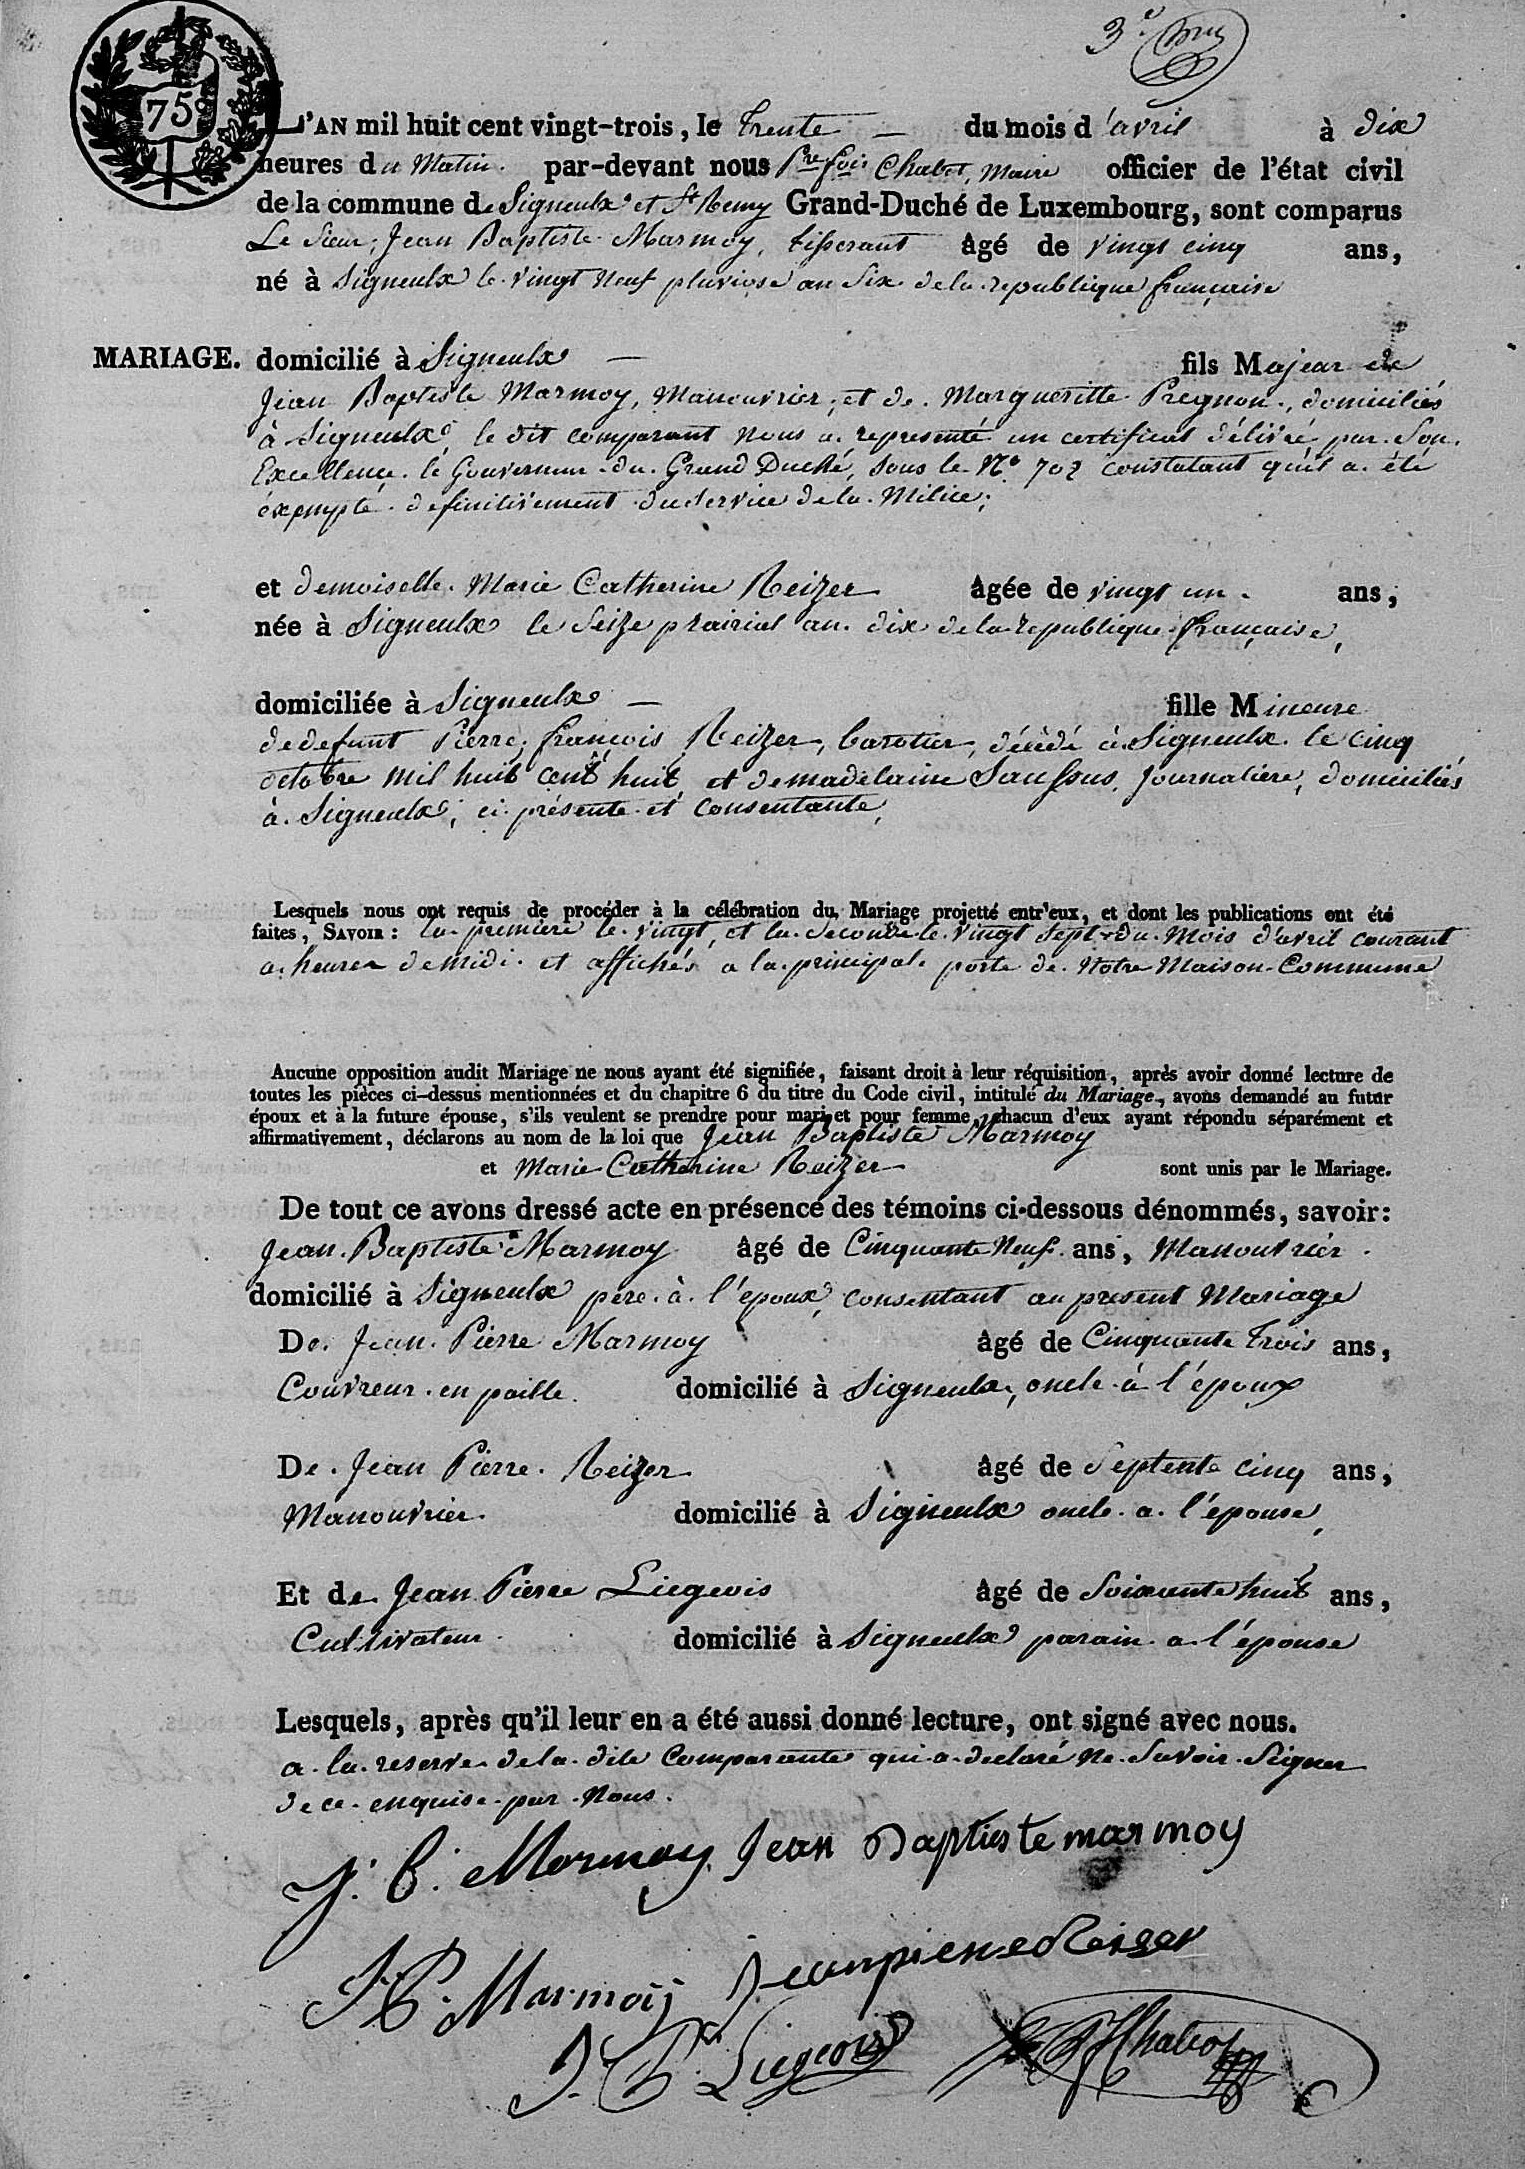 3e
75c
L'AN mil huit cent vingt-trois, le trente — du mois d'avril à dix
heures du Matin. par-devant nous Pre fois Chabot, Maire officier de l'état civil
de la commune de Signeulx et St Remy Grand-Duché de Luxembourg, sont comparus
Le Sieur, Jean Baptiste Marmoy, tisserant âgé de vingt cinq ans,
né à Signeulx le vingt neuf pluviose an Six de la republique française
MARIAGE. domicilié à Signeulx — fils Majeur de
Jean Baptiste Marmoy, Manouvrier, et de Margueritte Pregnon, domiciliés
à Signeulx le dit comparant nous a representé un certificat délivré par Son
Excellence le Gouverneur du Grand Duché, sous le No 702 constatant qu'il a été
éxempté definitivement du service de la Milice;
et demoiselle Marie Catherine Reizer âgée de vingt un ans;
née à Signeulx le Seize prairial an dix de la republique française,
domiciliée à Signeulx — fille Mineure
de defunt Pierre, françois Reizer, décédé à Signeulx le cinq
octobre mil huit cent huit, et de madelaine Saussus, Journaliere, domiciliés
à Signeulx, ci présente et consentante,
Lesquels nous ont requis de procéder à la célébration du Mariage projetté entr'eux, et dont les publications ont été
faites, SAVOIR : la premiere le vingt, et la Seconde le vingt Sept du Mois d'avril courant
a heure de midi et affichés a la principal porte de Notre Maison Commune
Aucune opposition audit Mariage ne nous ayant été signifiée, faisant droit à leur réquisition, après avoir donné lecture de
toutes les pièces ci-dessus mentionnées et du chapitre 6 du titre du Code civil, intitulé du Mariage, avons demandé au futur
époux et à la future épouse, s'ils veulent se prendre pour mari et pour femme, chacun d'eux ayant répondu séparément et
affirmativement, déclarons au nom de la loi que Jean Baptiste Marmoy
et Marie Catherine Reizer sont unis par le Mariage.
De tout ce avons dressé acte en présence des témoins ci-dessous dénommés, savoir:
Jean Baptiste Marmoy âgé de Cinquante Neuf ans, Manouvrier
domicilié à Signeulx pere à l'epoux, consentant au present Mariage
De Jean Pierre Marmoy âgé de Cinquante trois ans,
Couvreur en paille domicilié à Signeulx, oncle à l'époux
De Jean Pierre Reizer âgé de Septente cinq ans,
Manouvrier domicilié à Signeulx oncle a l'épouse,
Et de Jean Pierre Liegeois âgé de Soixante huit ans,
Cultivateur domicilié à Signeulx parain a l'épouse
Lesquels, après qu'il leur en a été aussi donné lecture, ont signé avec nous.
a la reserve de la dite Comparante qui a declaré ne Savoir Signer
de ce enquise par Nous.
J. B. Marmoy Jean Baptiste marmoy
J. P. Marmoij Jean piere Reiser
J. Pr Liegeois PfChabot